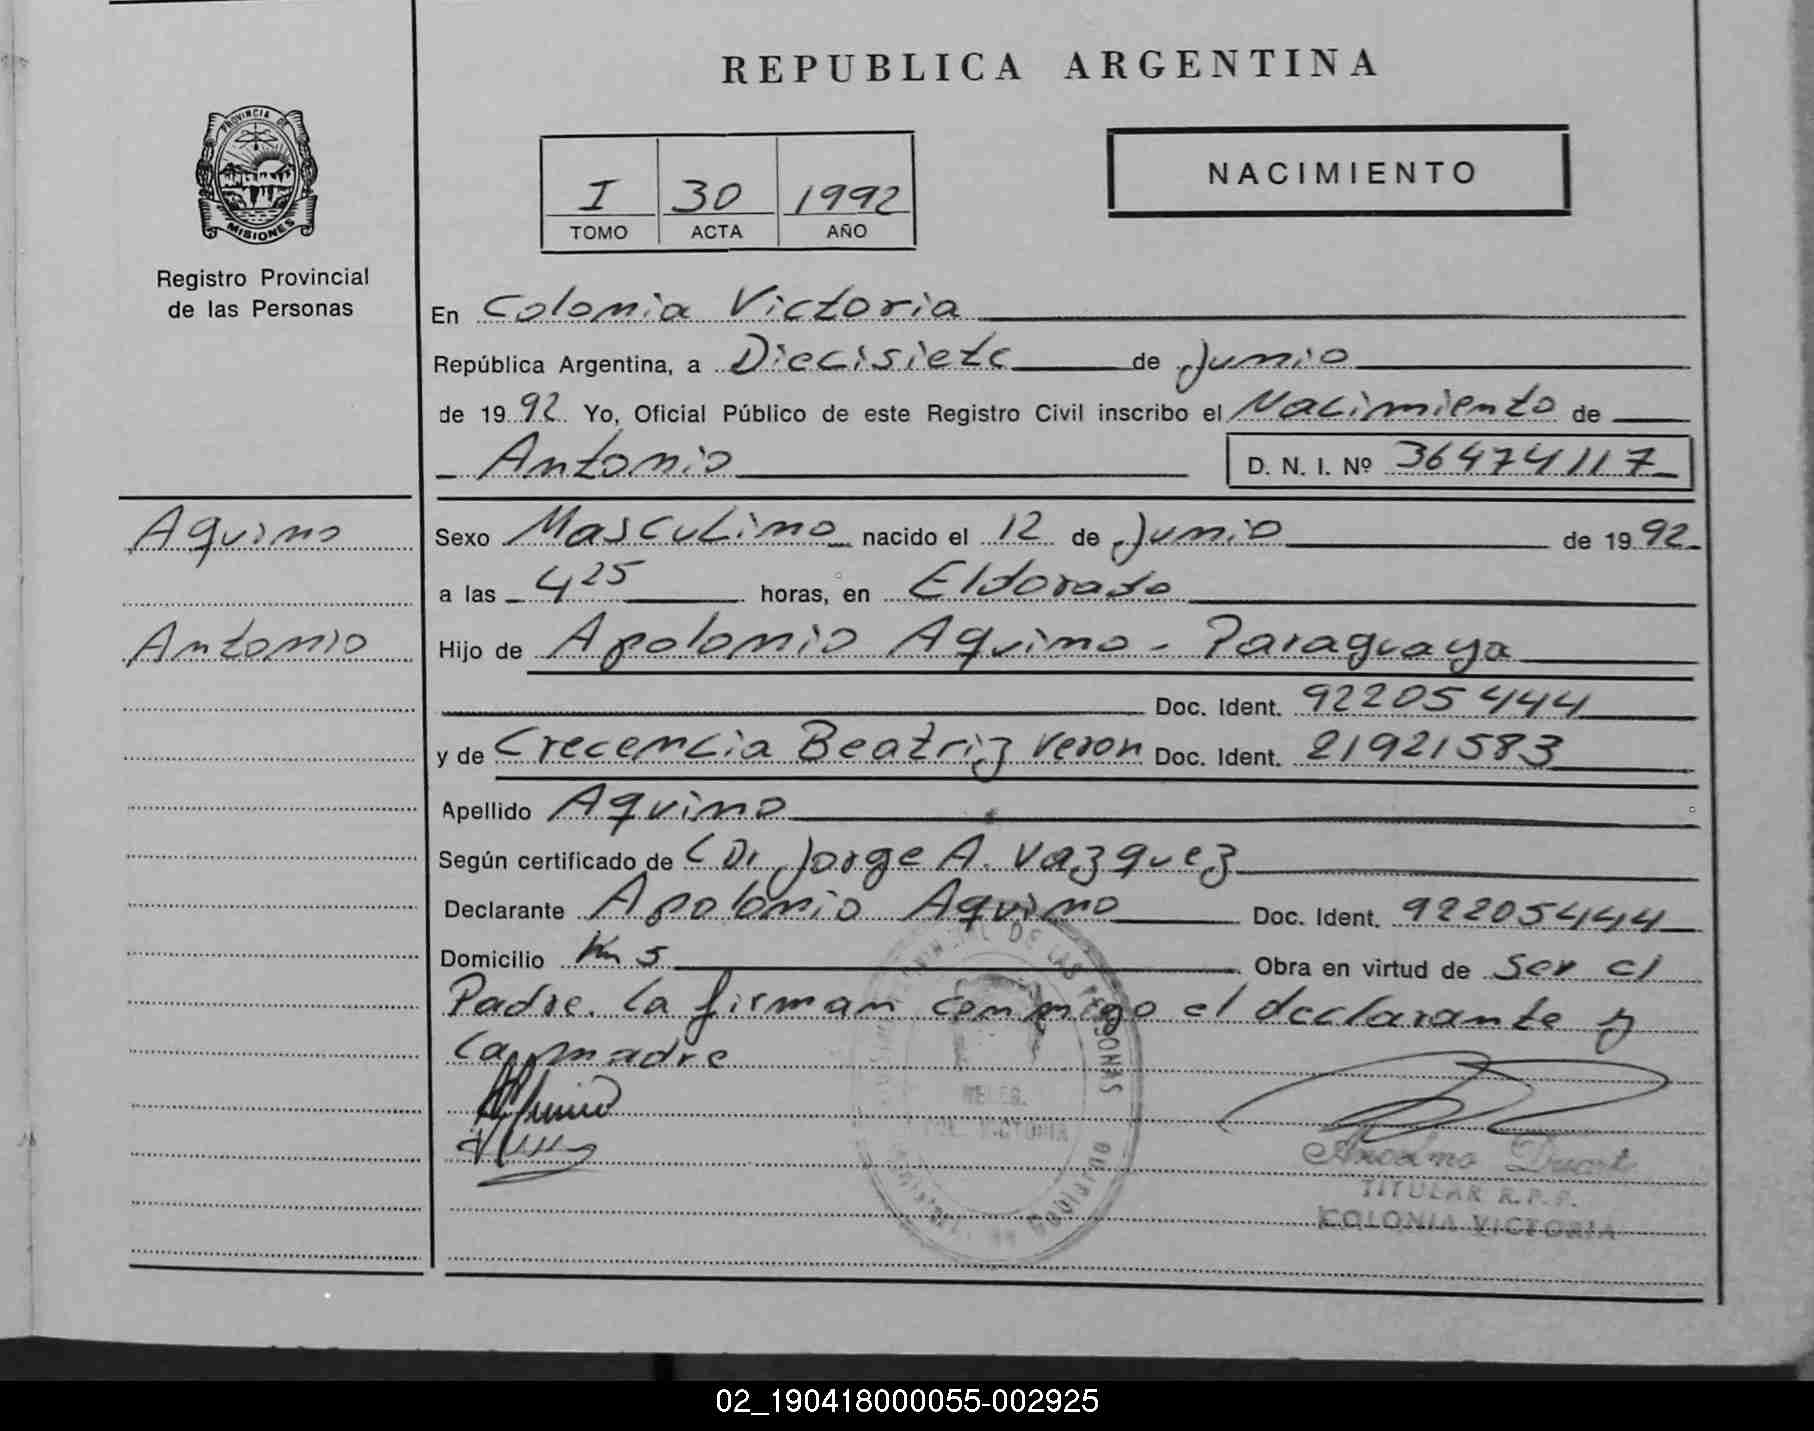 REPUBLICA ARGENTINA
PROVINCIA DE
MISIONES
Registro Provincial
de las Personas
I 30 1992
TOMO ACTA AÑO
NACIMIENTO
En Colonia Victoria
República Argentina, a Diecisiete de Junio
de 1992 Yo, Oficial Público de este Registro Civil inscribo el Nacimiento de
Antonio D. N. I. Nº 36474117
Aquino
Antonio
Sexo Masculino nacido el 12 de Junio de 1992
a las 4 25 horas, en Eldorado
Hijo de Apolonio Aquino - Paraguaya
Doc. Ident. 92205444
y de Crecencia Beatriz Veron Doc. Ident. 21921583
Apellido Aquino
Según certificado de Jorge A. Vazquez
Declarante Apolonio Aquino Doc. Ident. 92205444
Domicilio Km 5 Obra en virtud de Ser el
Padre. La firman conmigo el declarante y
la madre
DE LAS PERSONAS
DELEG.
COL. VICTORIA
Anselmo Duarte
TITULAR R.P.P.
COLONIA VICTORIA
02_190418000055-002925